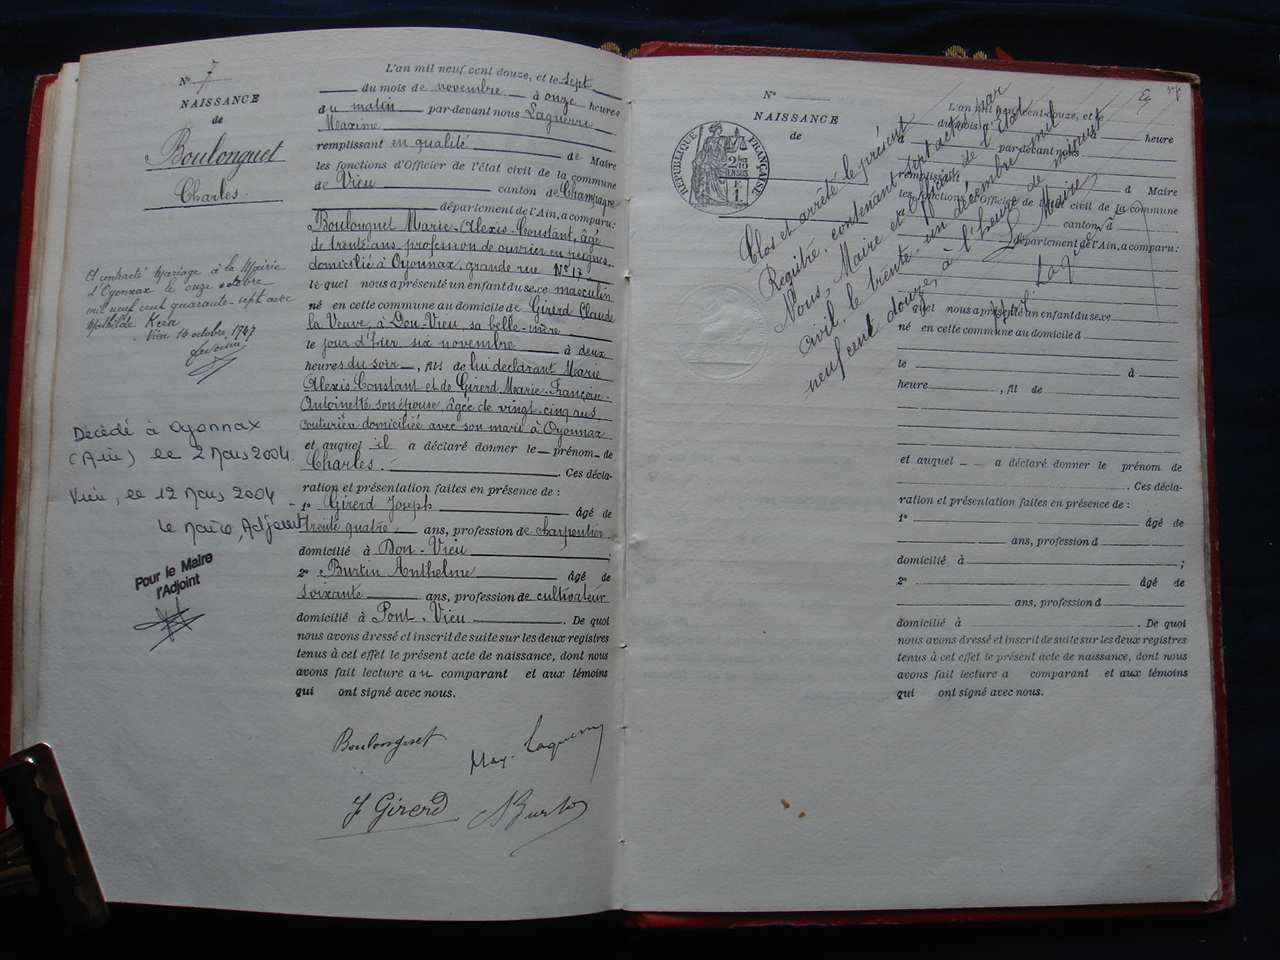 N° 7
NAISSANCE
de
Boulonguet
Charles.
L'an mil neuf cent douze, et le sept
du mois de novembre à onze heures
du matin par-devant nous Laguerre
Maxime
remplissant en qualité de Maire
les fonctions d'Officier de l'état civil de la commune
de Vieu canton de Champagne
département de l'Ain, a comparu:
Boulonguet Marie-Alexis-Constant, âgé
de trente ans, profession de ouvrier en peignes
domicilié à Oyonnax, grande rue N° 17,
lequel nous a présenté un enfant du sexe masculin
né en cette commune au domicile de Girerd Claude
la Veuve, à Don-Vieu, sa belle-mère
le jour d'hier six novembre à deux
heures du soir, fils de lui déclarant Marie
Alexis Constant et de Girerd Marie-Françoise-
Antoinette son épouse, âgée de vingt-cinq ans
couturière domiciliée avec son mari à Oyonnax
et auquel il a déclaré donner le prénom de
Charles. Ces décla-
ration et présentation faites en présence de :
1° Girerd Joseph âgé de
trente quatre ans, profession de charpentier
domicilié à Don-Vieu ;
2° Burtin Anthelme âgé de
soixante ans, profession de cultivateur
domicilié à Pont-Vieu. De quoi
nous avons dressé et inscrit de suite sur les deux registres
tenus à cet effet le présent acte de naissance, dont nous
avons fait lecture au comparant et aux témoins
qui ont signé avec nous.
Boulonguet
Max. Laguerre
J Girerd
A Burtin
A contracté mariage à la Mairie
d'Oyonnax le onze octobre
mil neuf cent quarante-sept avec
Mathilde Kern
Vieu 14 octobre 1947
Décédé à Oyonnax
(Ain) le 2 Mars 2004.
Vieu, le 12 Mars 2004
Le Maire, Adjoint
Pour le Maire
l'Adjoint
N°
NAISSANCE
de
RÉPUBLIQUE FRANÇAISE
2/10 EN SUS
F. 1
L'an mil neuf cent douze, et le
du mois d à heure
d par-devant nous
remplissant d Maire
les fonctions d'Officier de l'état civil de la commune
d canton d
département de l'Ain, a comparu:
lequel nous a présenté un enfant du sexe
né en cette commune au domicile d
le à
heure , fil de
et auquel a déclaré donner le prénom de
Ces décla-
ration et présentation faites en présence de :
1° âgé de
ans, profession d
domicilié à ;
2° âgé de
ans, profession d
domicilié à . De quoi
nous avons dressé et inscrit de suite sur les deux registres
tenus à cet effet le présent acte de naissance, dont nous
avons fait lecture a comparant et aux témoins
qui ont signé avec nous.
Clos et arrêté le présent
Registre, contenant sept actes par
Nous, Maire et Officier de l'état
civil le trente-un décembre mil
neuf cent douze, à l'heure de minuit
Le Maire